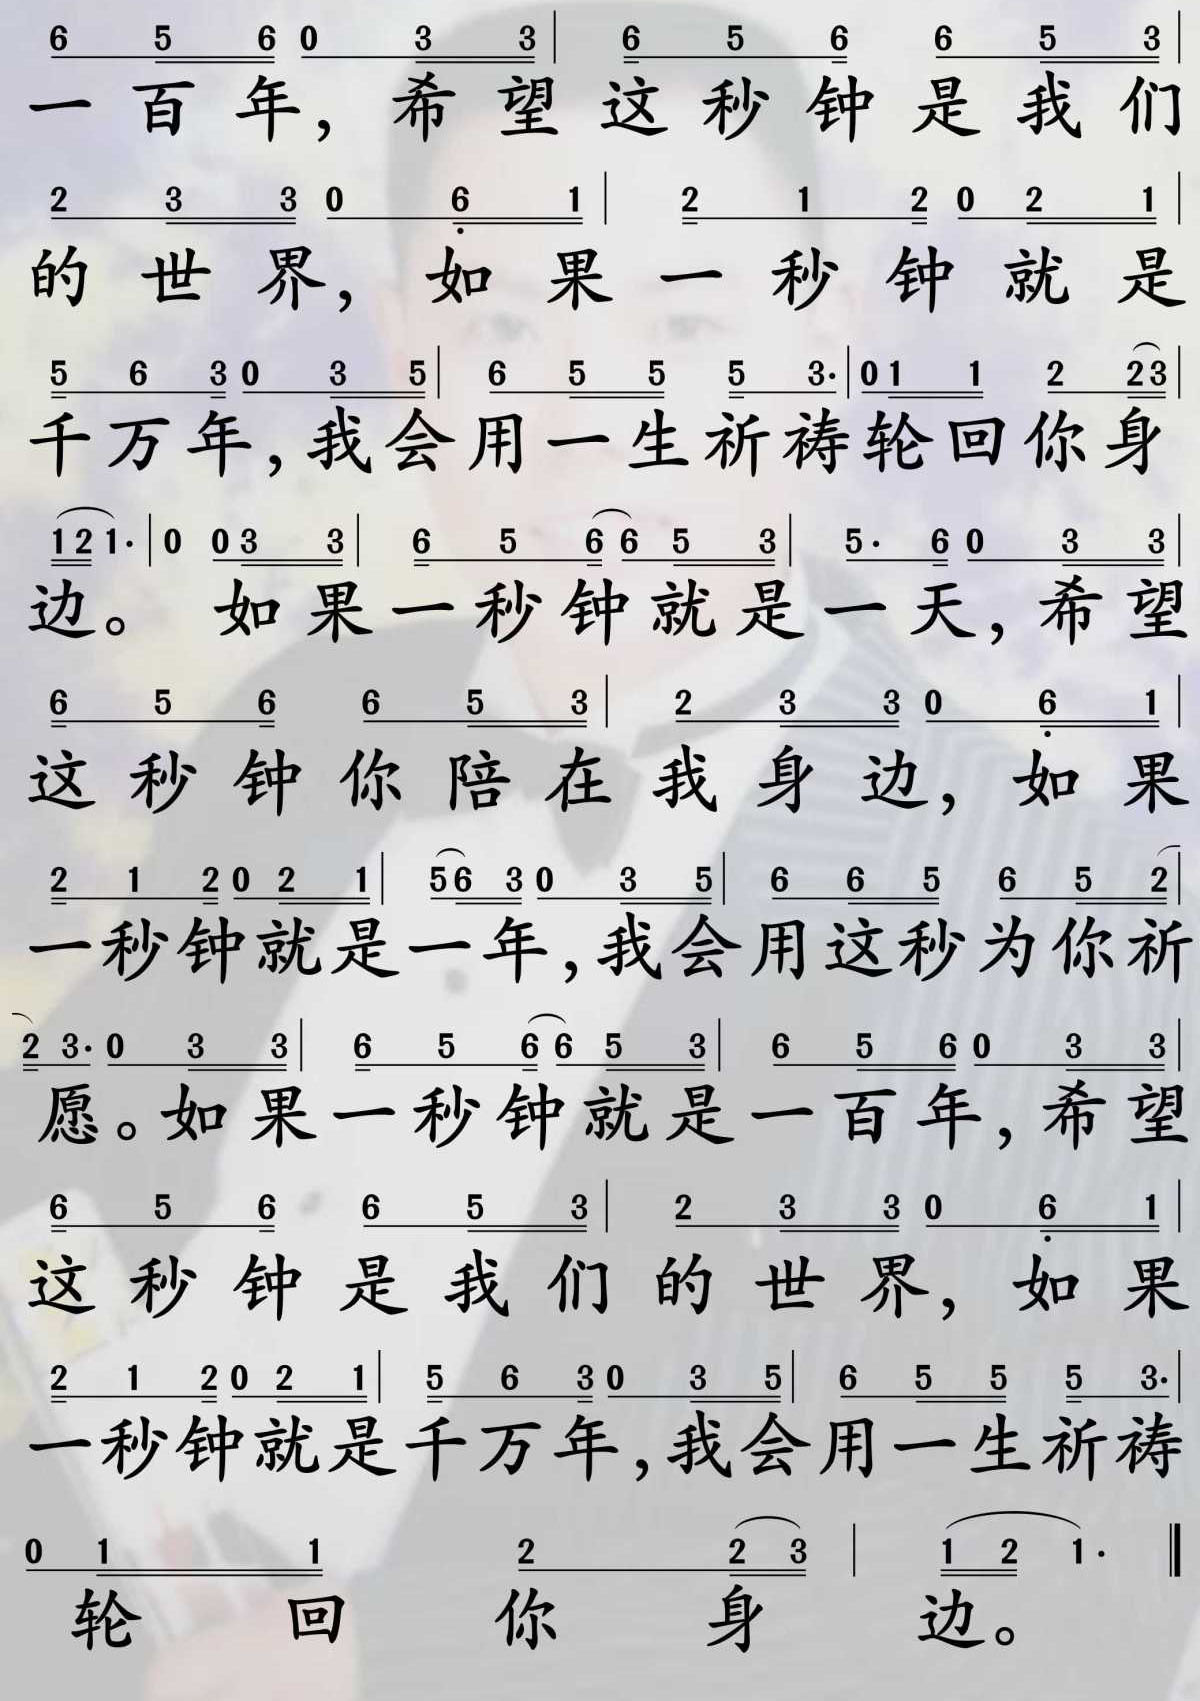 6 5 6 0 3 3 | 6 5 6 6 5 3 |
一百年，希望这秒钟是我们
2 3 3 0 6 1 | 2 1 2 0 2 1 |
的世界，如果一秒钟就是
5 6 3 0 3 5 | 6 5 5 5 3· | 0 1 1 2 2 3 |
千万年，我会用一生祈祷轮回你身
1 2 1· | 0 0 3 3 | 6 5 6 6 5 3 | 5· 6 0 3 3 |
边。如果一秒钟就是一天，希望
6 5 6 6 5 3 | 2 3 3 0 6 1 |
这秒钟你陪在我身边，如果
2 1 2 0 2 1 | 5 6 3 0 3 5 | 6 6 5 6 5 2 |
一秒钟就是一年，我会用这秒为你祈
2 3· 0 3 3 | 6 5 6 6 5 3 | 6 5 6 0 3 3 |
愿。如果一秒钟就是一百年，希望
6 5 6 6 5 3 | 2 3 3 0 6 1 |
这秒钟是我们的世界，如果
2 1 2 0 2 1 | 5 6 3 0 3 5 | 6 5 5 5 3· |
一秒钟就是千万年，我会用一生祈祷
0 1 1 2 2 3 | 1 2 1· ‖
轮回你身边。